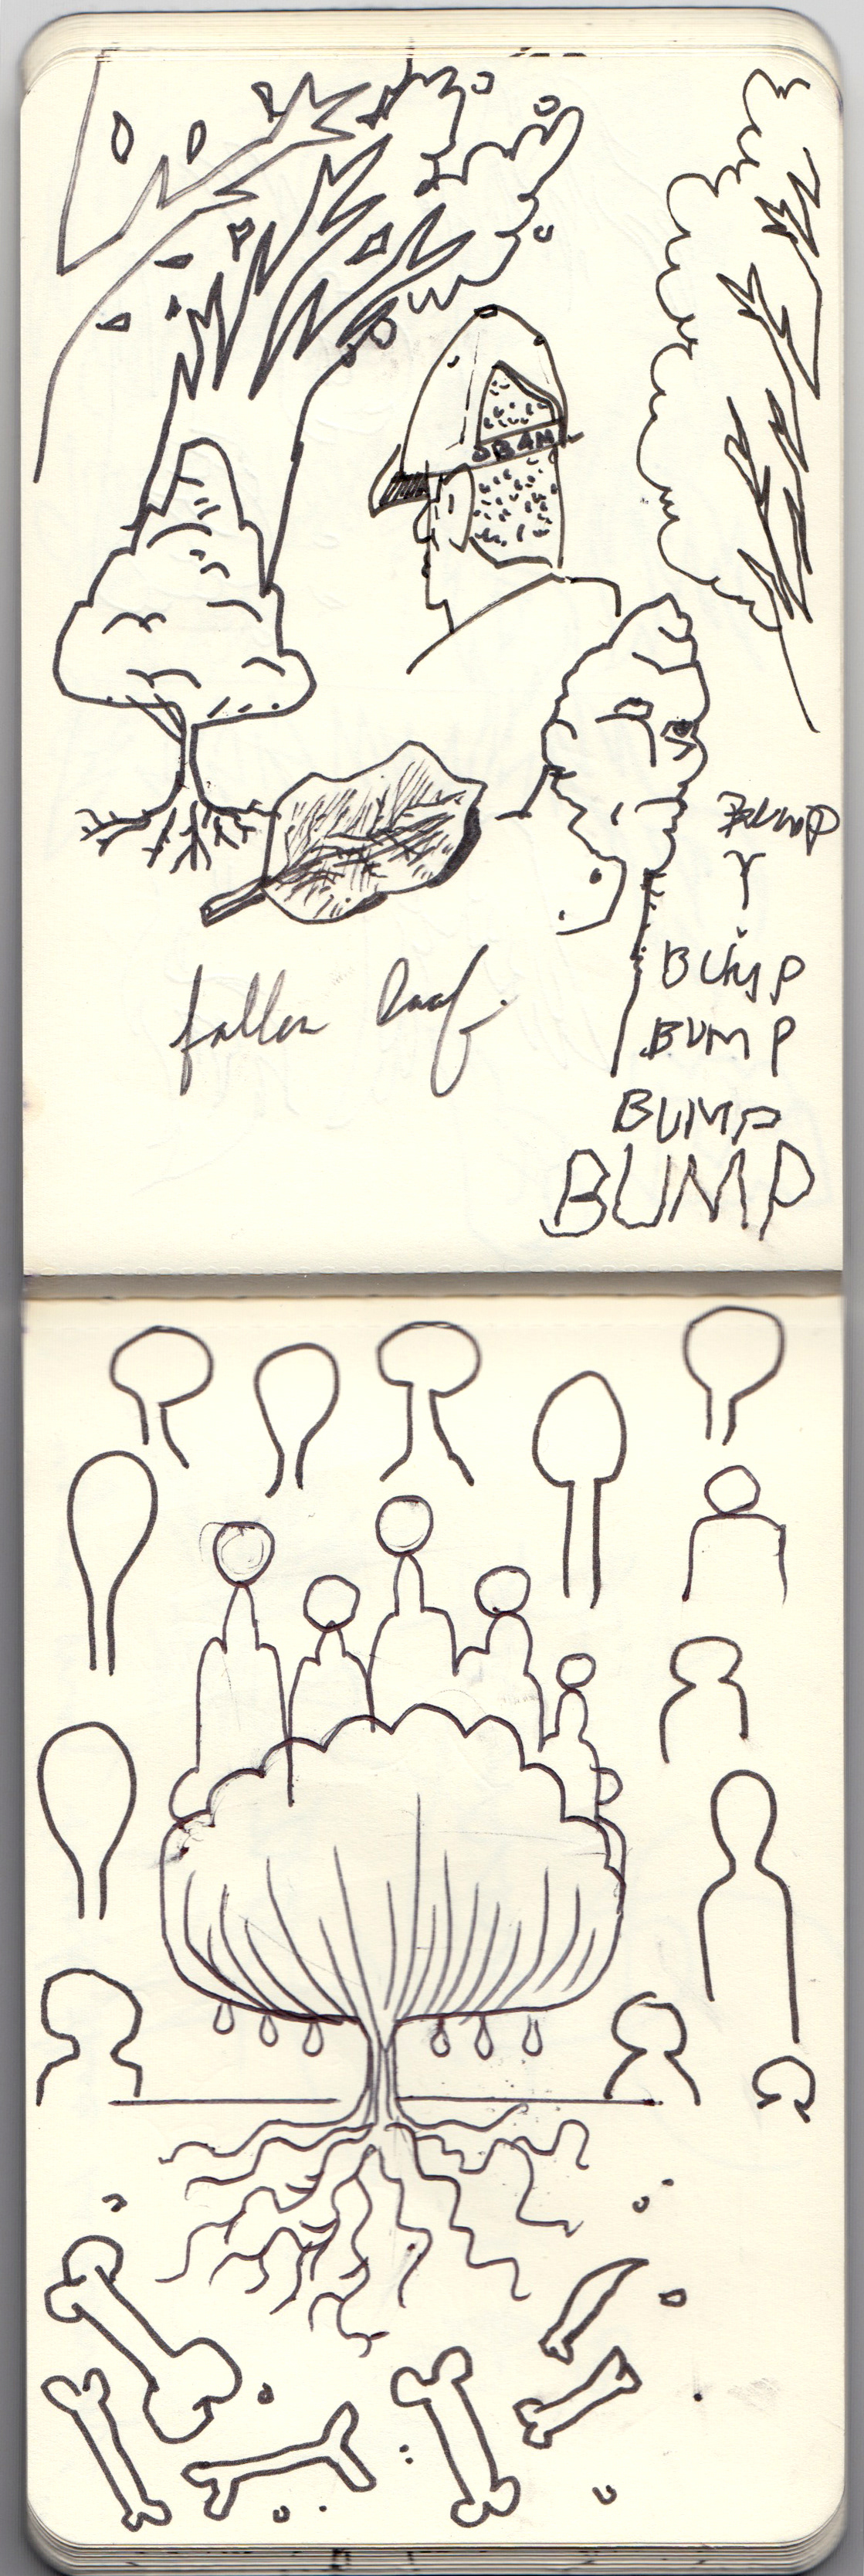 OBAM
fallen leaf.
BUMP
BUMP
BUMP
BUMP
BUMP